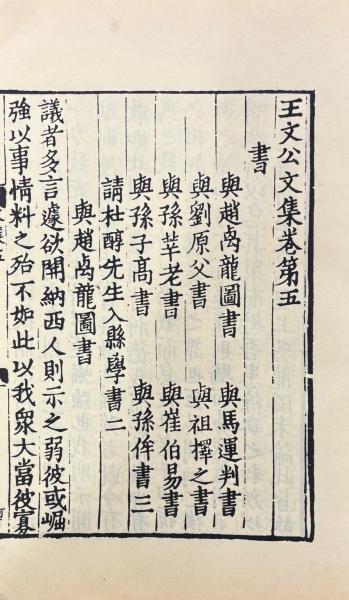 王文公文集卷第五
書
與趙卨龍圖書 與馬運判書
與劉原父書 與祖擇之書
與孫莘老書 與崔伯易書
與孫子高書 與孫侔書三
請杜醇先生入縣學書二
與趙卨龍圖書
議者多言遽欲開納西人則示之弱彼或崛
強以事情料之殆不如此以我衆大當彼寡